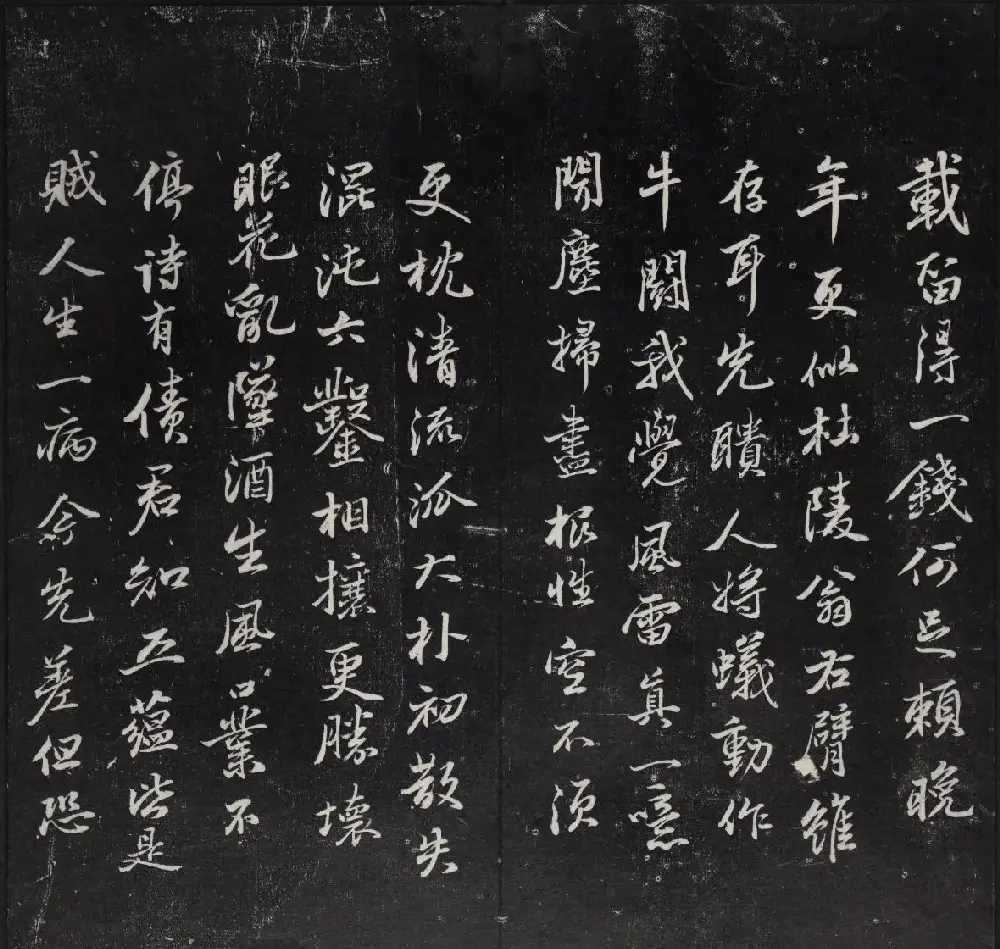 載留得一錢何足賴晚
年更似杜陵翁右臂雖
存耳先聵人將蟻動作
牛鬪我覺風雷真一噫
聞塵掃盡根性空不須
更枕清流派大朴初散失
混沌六鑿相攘更勝壞
眼花亂墜酒生風口業不
停詩有債君知五蘊皆是
賊人生一病今先差但恐